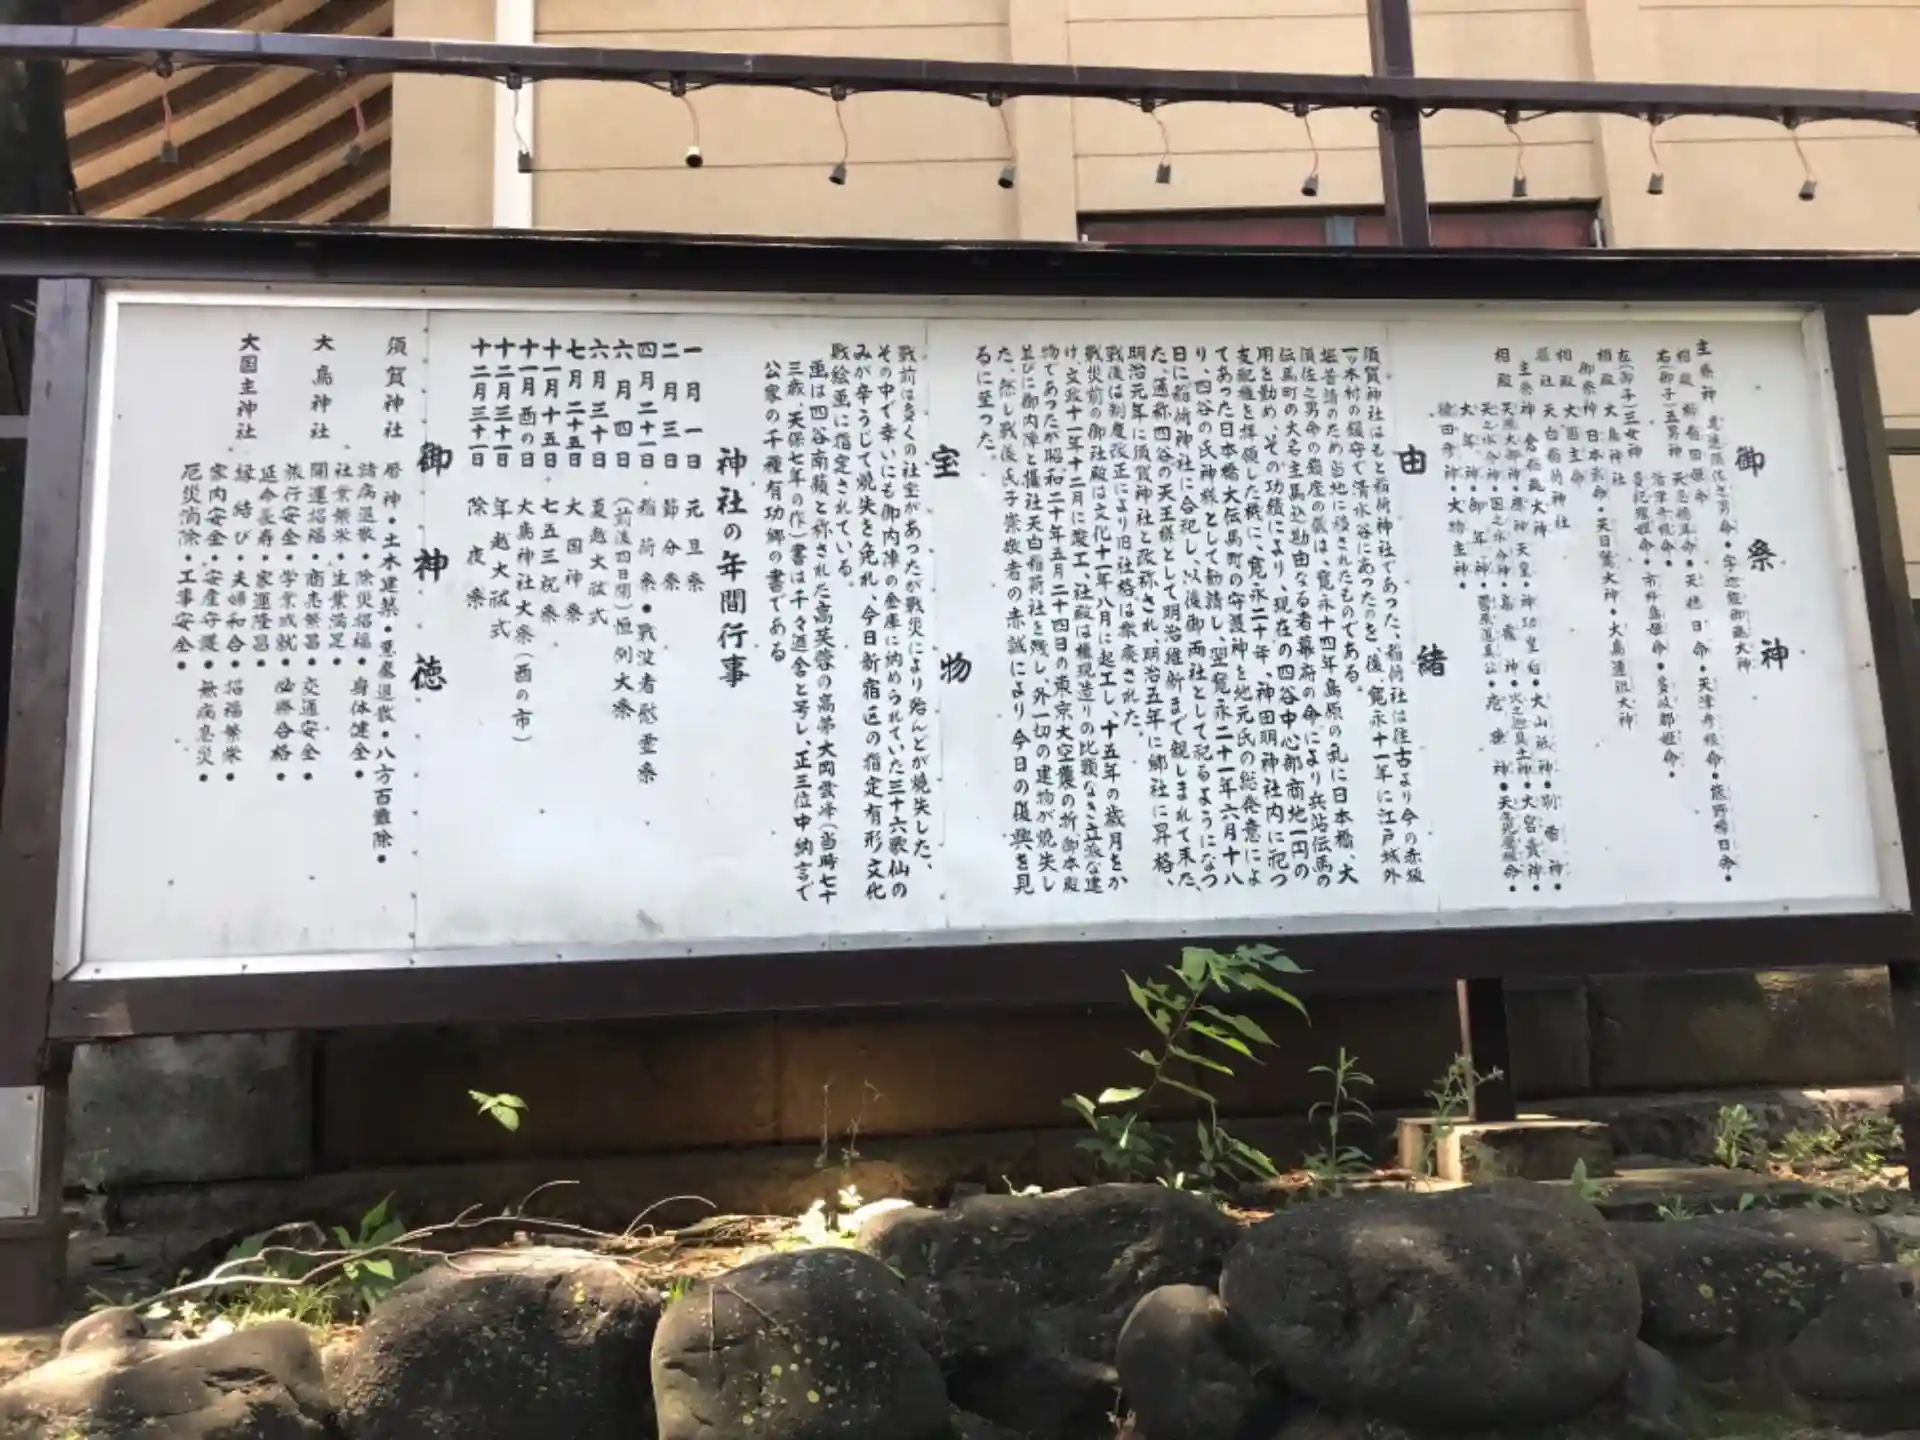 御祭神
主祭神
須佐之男命・宇迦能御魂大神
相殿
櫛稲田姫命
右(御子)五男神
天忍穂耳命・天穂日命・天津彦根命・熊野樟日命・
活津彦根命・
左(御子)三女神
多紀理姫命・市杵島姫命・多岐都姫命・
相殿 大鳥神社
御祭神 日本武命・天日鷲大神・大鳥連祖大神
相殿 大国主命
末社 天白稲荷神社
主祭神 倉稲魂大神
相殿
由緒
須賀神社はもと稲荷神社であった、稲荷社は往古より今の赤坂
一ッ木村の鎮守で清水谷にあったのを、後、寛永十一年に江戸城外
堀普請のため当地に移されたものである。
須佐之男命の鎮座の儀は、寛永十四年島原の乱に日本橋、大
伝馬町の大名主馬込勘由なる者幕府の命により兵站伝馬の
用を勤め、その功績により、現在の四谷中心部商地一円の
支配権を拝領した機に、寛永二十年、神田明神社内に祀つ
てあった日本橋大伝馬町の守護神と地元氏の総発意によ
り、四谷の氏神様として勧請し、翌寛永二十一年六月十八
日に稲荷神社に合祀し、以後御両社として祀るようになつ
た、通称四谷の天王様として明治維新まで親しまれて来た、
明治元年に須賀神社と改称され、明治五年に郷社に昇格、
戦後は制度改正により旧社格は廃された。
戦災前の御社殿は文化十一年八月に起工し、十五年の歳月をか
け、文政十一年十二月に竣工、社殿は権現造りの比類なき立派な建
物であったが昭和二十年五月二十四日の東京大空襲の折、御本殿
並びに御内陣と摂社天白稲荷社を残し、外一切の建物が焼失し
た、然し戦後氏子崇敬者の赤誠により今日の復興を見
るに至った
宝物
戦前は多くの社宝があったが戦災により殆んどが焼失した、
その中で幸いにも御内陣の金庫に納められていた三十六歌仙の
みが辛うじて焼失を免れ、今日新宿区の指定有形文化
戝絵画に指定されている。
画は四谷南蘋と称された高芙蓉の高弟大岡雲峰(当時七十
三歳、天保七年の作)書は千々廼舎と号し、正三位中納言で
公家の千種有功郷の書である
神社の年間行事
一月一日 元旦祭
二月三日 節分祭
四月二十一日 稲荷祭・戦没者慰霊祭
六月四日 (前後四日間)恒例大祭
六月三十日 夏越大祓式
七月二十五日 大国神祭
十一月十五日 七五三祝祭
十一月酉の日 大鳥神社大祭(酉の市)
十二月三十一日 年越大祓式
十二月三十一日 除夜祭
御神徳
須賀神社 厄神・土木建築・悪疫退散・八方百難除・
諸病退散・除災招福・身体健全・
社業繁栄・生業満足・
大鳥神社 開運招福・商売繁昌・交通安全・
旅行安全・学業成就・必勝合格・
延命長寿・家運隆昌・
大国主神社 縁結び・夫婦和合・招福繁栄・
家内安全・安産守護・無病息災・
厄災消除・工事安全・